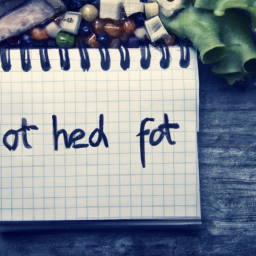 ot hed fot